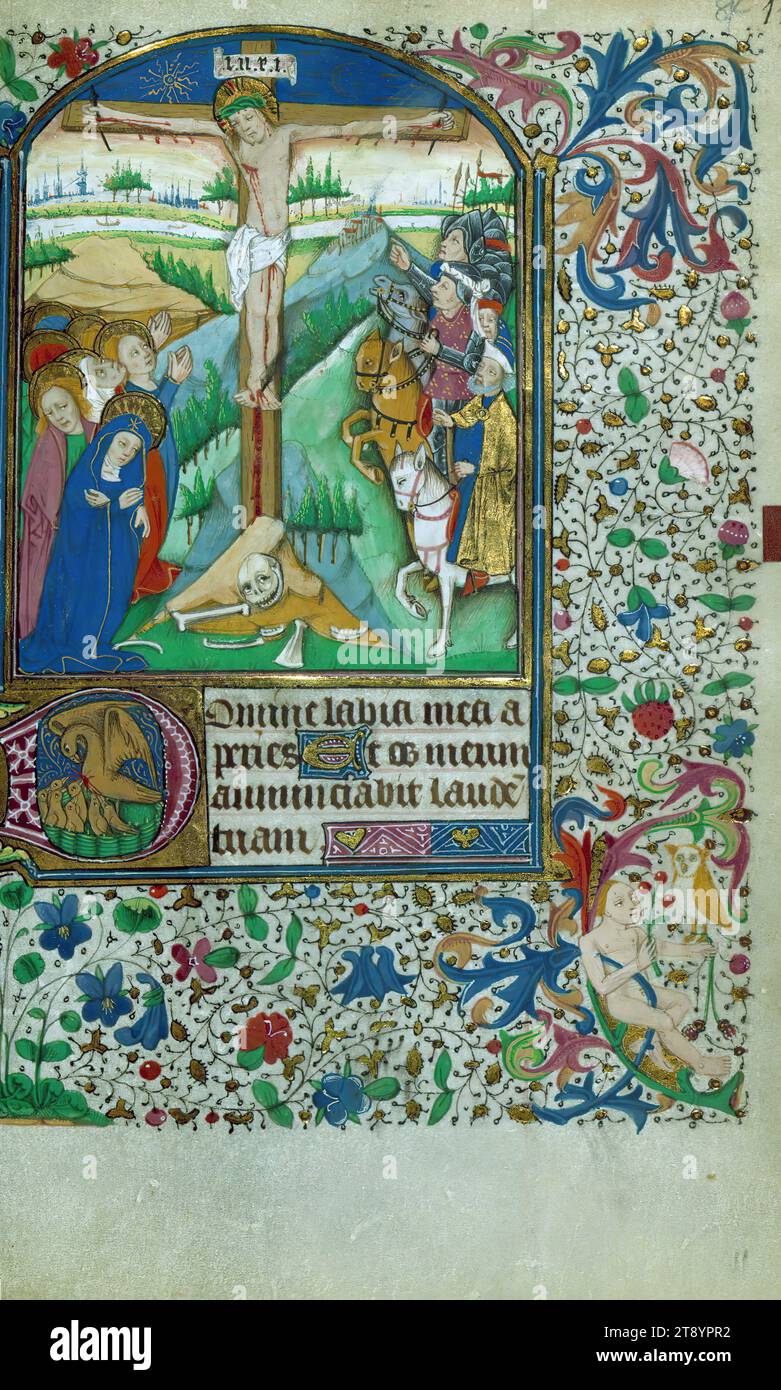 I.N.R.I.
Domine labia mea a
peries Et os meum
annunciabit laudē
tuam
alamy
Image ID: 2T8YPR2
www.alamy.com